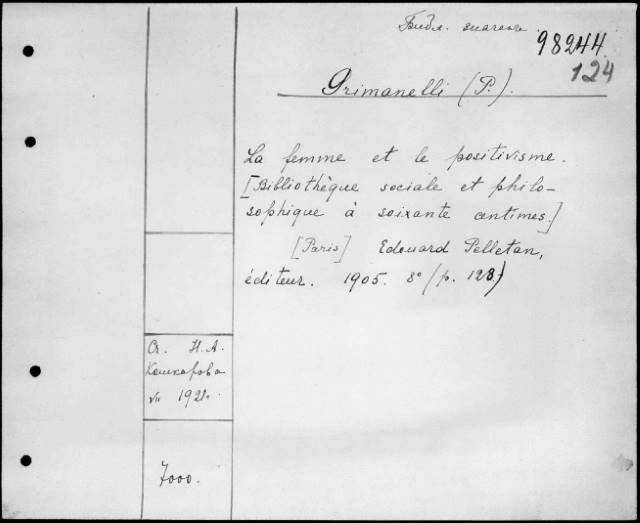 Библ.
98244
124
Grimanelli (P.).
La femme et le positivisme.
[Bibliothèque sociale et philo-
sophique à soixante centimes.]
[Paris] Edouard Pelletan,
éditeur. 1905. 8° (p. 128.)
От. Н. А.
Кашкарова
VII 1921.
7000.